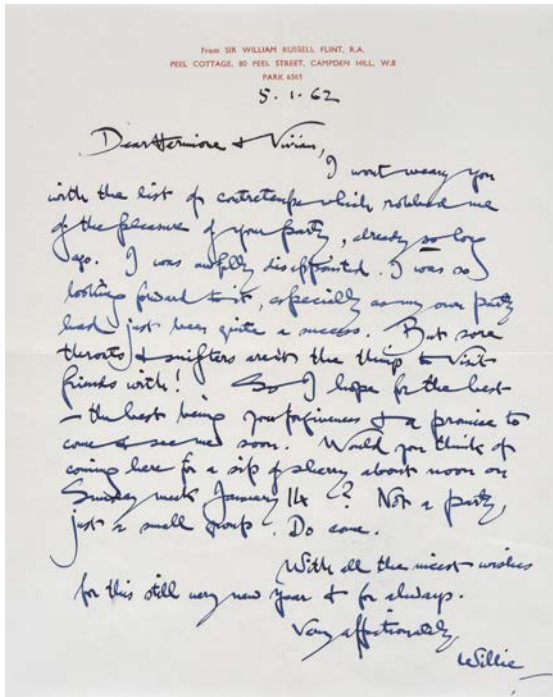 From SIR WILLIAM RUSSELL FLINT, R.A.
PEEL COTTAGE, 80 PEEL STREET, CAMPDEN HILL, W.8
PARK 6561
5.1.62
Dear Hermione & Vivian,
I wont weary you
with the list of contretemps which robbed me
of the pleasure of your party, already so long
ago. I was awfully disappointed. I was so
looking forward to it, especially as my own party
had just been quite a success. But sore
throats & snifters aren't the things to visit
friends with! So I hope for the best
– the best being your forgiveness & a promise to
come & see me soon. Would you think of
coming here for a sip of sherry about noon on
Sunday week January 14? Not a party,
just a small group. Do come.
With all the nicest wishes
for this still very new year & for always.
Very affectionately,
Willie